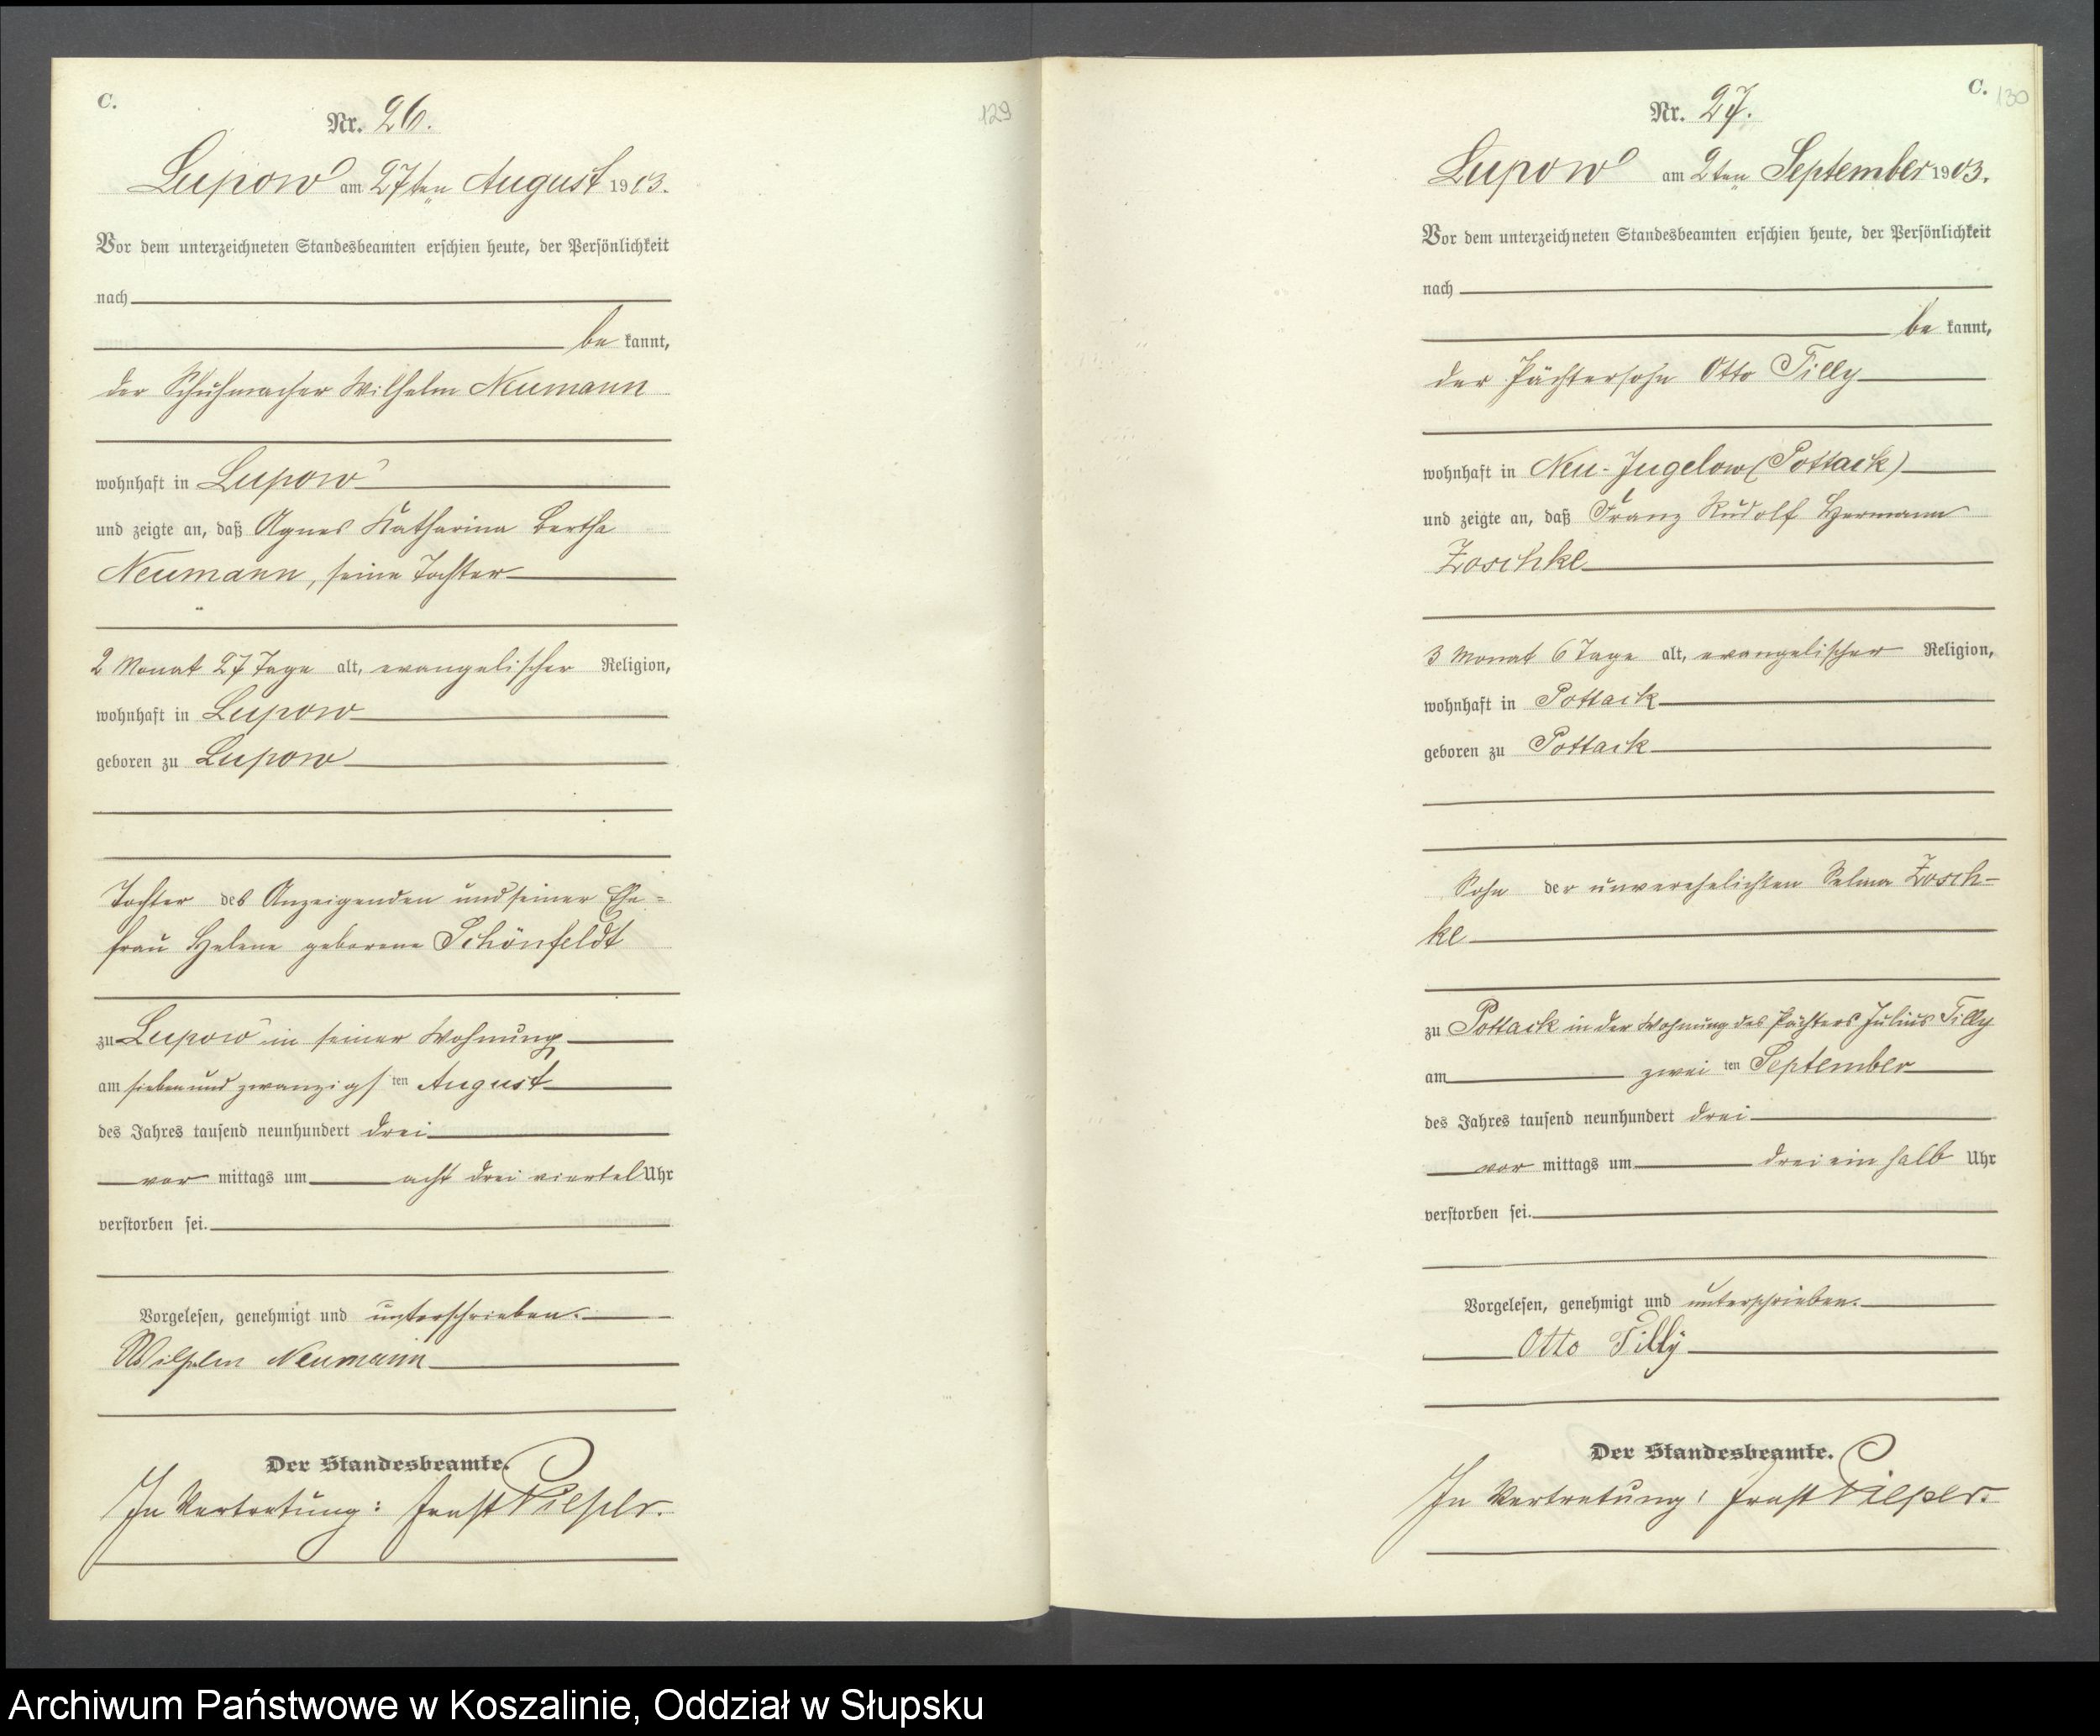 C.
129
Nr. 26.
Lupow am 27ten August 1903.
Vor dem unterzeichneten Standesbeamten erschien heute, der Persönlichkeit
nach
be kannt,
der Schuhmacher Wilhelm Neumann
wohnhaft in Lupow
und zeigte an, daß Agnes Katharina Bertha
Neumann, seine Tochter
2 Monat 27 Tage alt, evangelischer Religion,
wohnhaft in Lupow
geboren zu Lupow
Tochter des Anzeigenden und seiner Ehe=
frau Helene geborene Schönfeldt
zu Lupow in seiner Wohnung
am sieben und zwanzigs ten August
des Jahres tausend neunhundert drei
vor mittags um acht drei viertel Uhr
verstorben sei.
Vorgelesen, genehmigt und unterschrieben.
Wilhelm Neumann
Der Standesbeamte.
In Vertretung: Ernst Pieper.
C.
130
Nr. 27.
Lupow am 2ten September 1903.
Vor dem unterzeichneten Standesbeamten erschien heute, der Persönlichkeit
nach
be kannt,
der Pächtersohn Otto Tilly
wohnhaft in Neu-Jugelow (Pottack)
und zeigte an, daß Franz Rudolf Hermann
Zoschke
3 Monat 6 Tage alt, evangelischer Religion,
wohnhaft in Pottack
geboren zu Pottack
Sohn der unverehelichten Selma Zosch-
ke
zu Pottack in der Wohnung des Pächters Julius Tilly
am zwei ten September
des Jahres tausend neunhundert drei
vor mittags um drei ein halb Uhr
verstorben sei.
Vorgelesen, genehmigt und unterschrieben.
Otto Tilly
Der Standesbeamte.
In Vertretung: Ernst Pieper.
Archiwum Państwowe w Koszalinie, Oddział w Słupsku